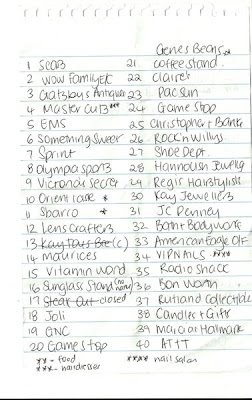 Genes Beans**
1 Sears 21 coffee stand.
2 WOW Family Ent 22 Claire's
3 Gatsbys Antiques 23 Pacsun
4 Master Cuts*** 24 Game Stop
5 EMS 25 Christopher+Banks
6 Something Sweet 26 Rock'n Willys
7 Sprint 27 Shoe Dept.
8 Olympia Sports 28 Hannoush Jewelry
9 Victoria's Secret 29 Regis Hairstylists
10 Orient race * 30 Kay Jewellers
11 Sbarro * 31 JC Penney
12 Lens Crafters 32 Bath+Bodyworks
13 Kay Toys Bee (c) 33 American Eagle Otf.
14 Maurices 34 VIP NAILS ****
15 Vitamin World 35 Radio Shack
16 Sunglass Stand (no name) 36 Bon Worth
17 Steak Out closed 37 Rutland Collectible
18 Joli 38 Candles+Gifts
19 GNC 39 Marciar Hallmark
20 Gamestop 40 AT+T
** - food **** nail salon
*** - hairdresser